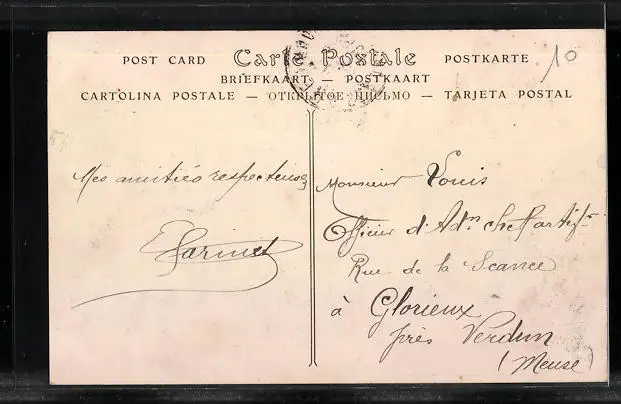 POST CARD Carte Postale POSTKARTE
BRIEFKAART — POSTKAART
CARTOLINA POSTALE — ОТКРЫТОЕ ПИСЬМО — TARJETA POSTAL
10
Mes amitiés respectueuses
EFarinet
Monsieur Vouis
Officier d'Adon chef artifr
Rue de la Scance
à Glorieux
près Verdun
(Meuse)